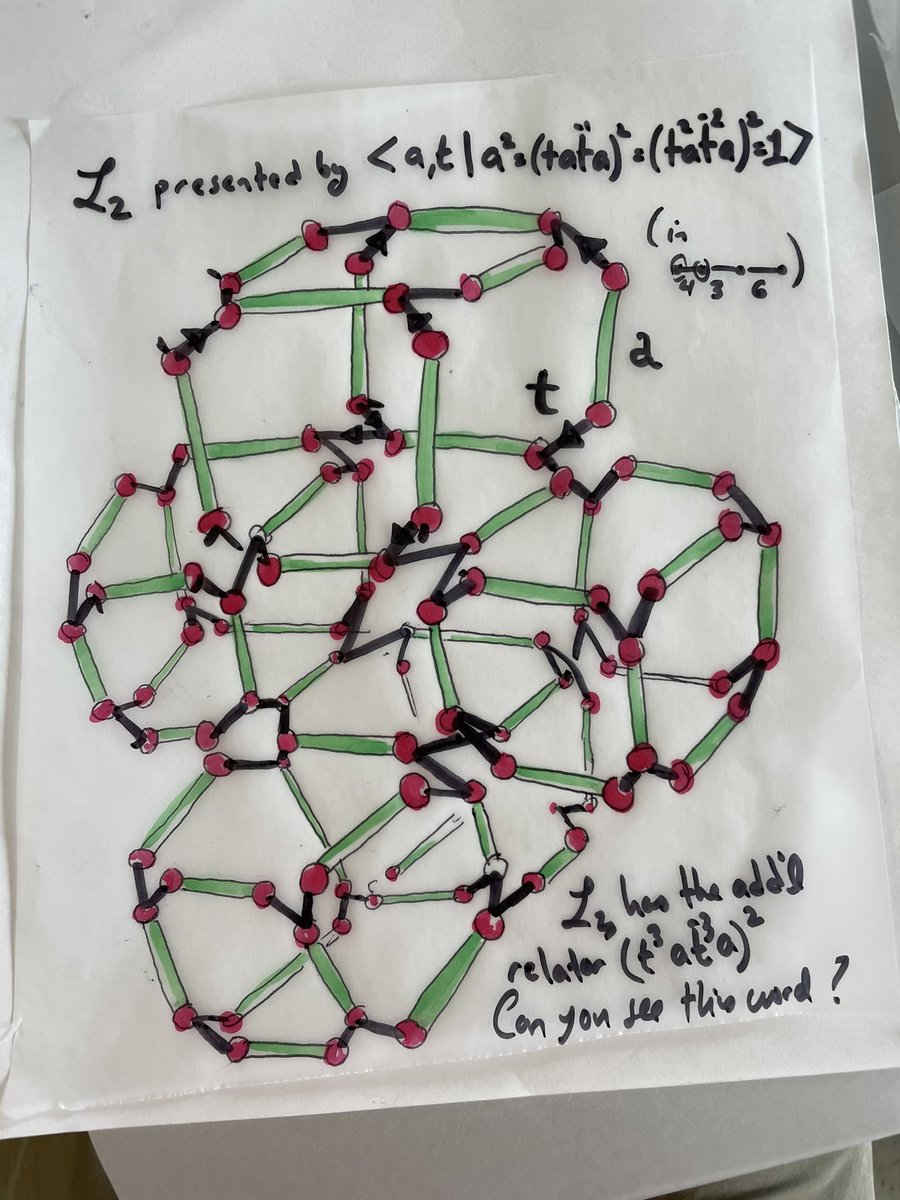 L₂ presented by <a,t | a²=(tat̄a)²=(t²at̄²a)²=1>
(in
4 3 6 )
a
t
L₃ has the add'l
relator (t³at̄³a)²
Can you see this word?